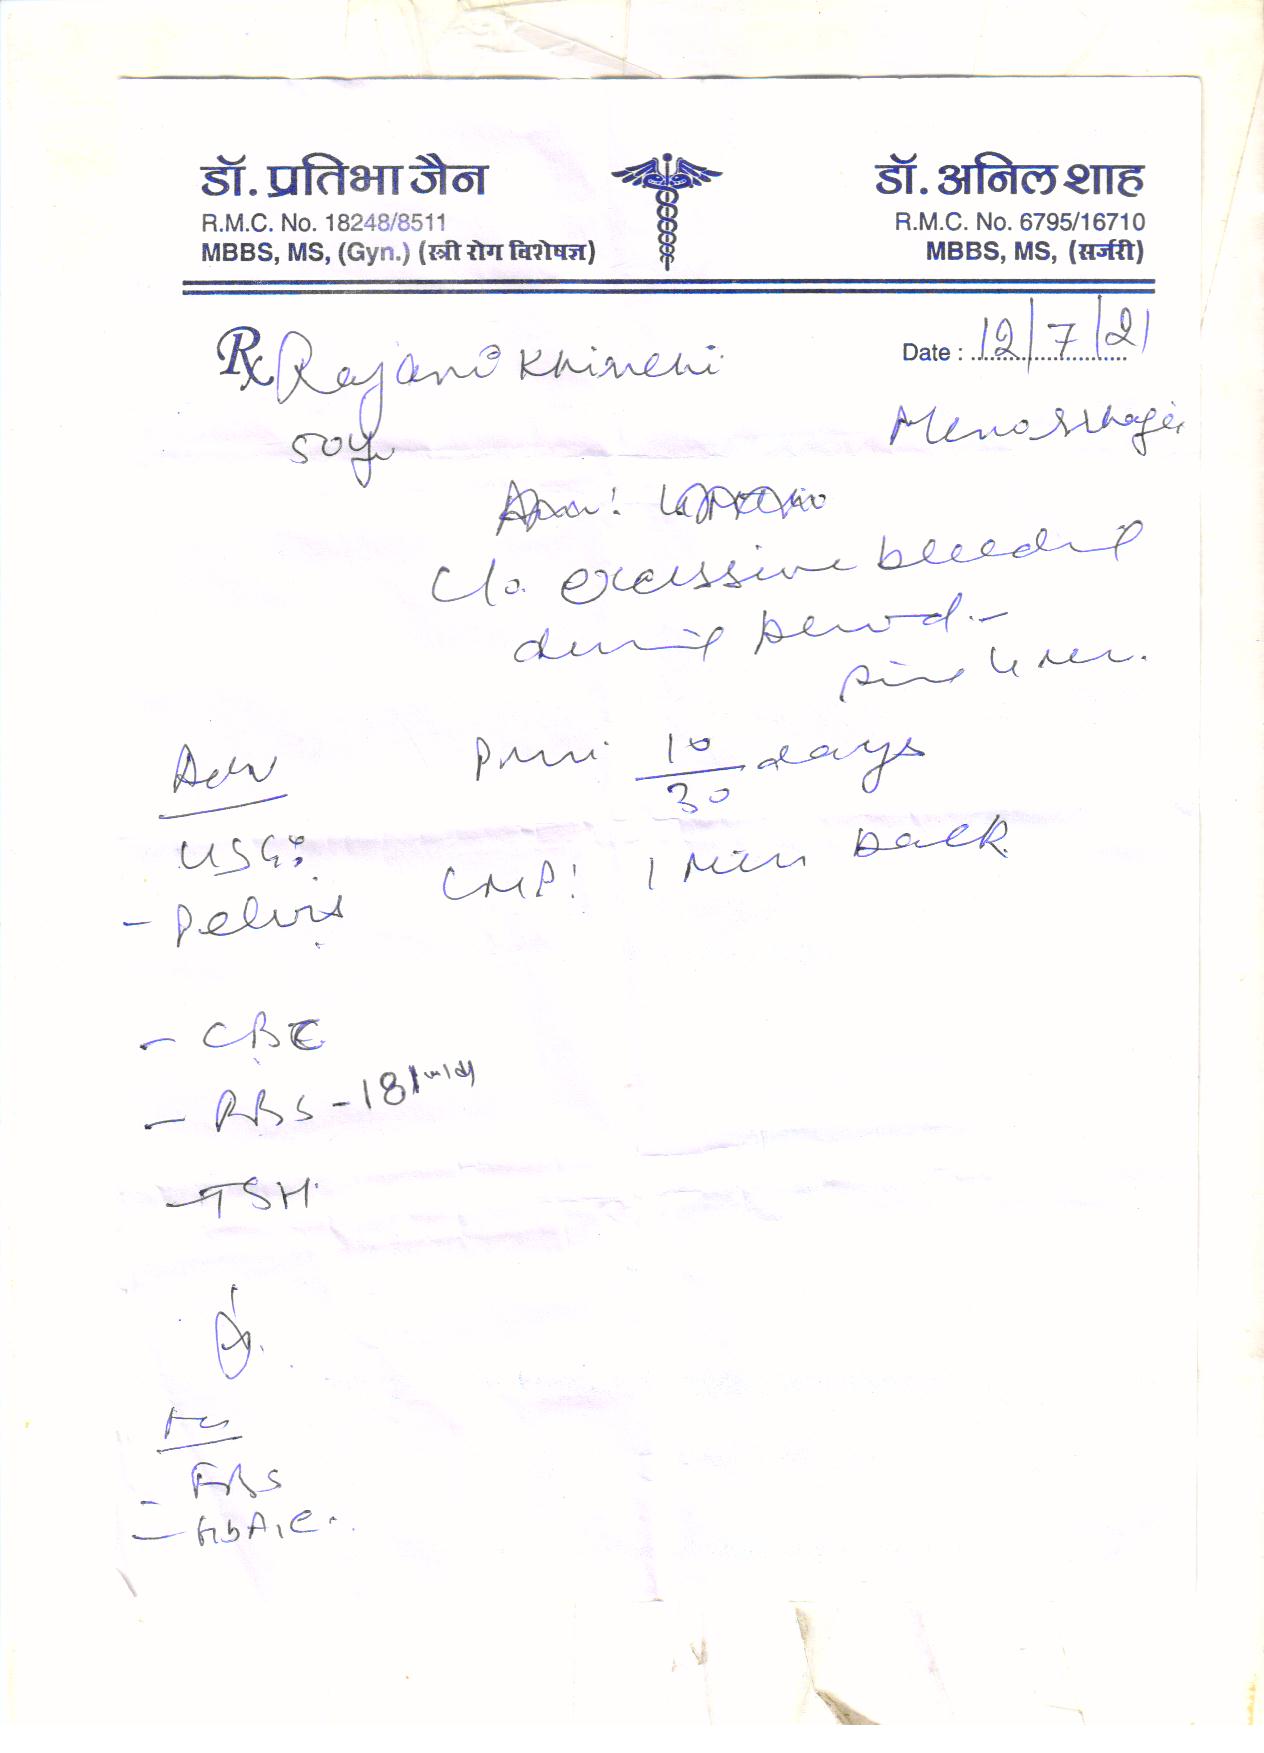 डॉ. प्रतिभा जैन
R.M.C. No. 18248/8511
MBBS, MS, (Gyn.) (स्त्री रोग विशेषज्ञ)
डॉ. अनिल शाह
R.M.C. No. 6795/16710
MBBS, MS, (सर्जरी)
Rx Rajani Khinchi
Date : 12/7/21
50y
Menorrhagia
C/o. excessive bleeding
during period.-
since
Adv
10/30 days
USG:
- Pelvis
LMP! 1 back
- CBC
- RBS - 181
- TSH
- FBS
- HbA1C.